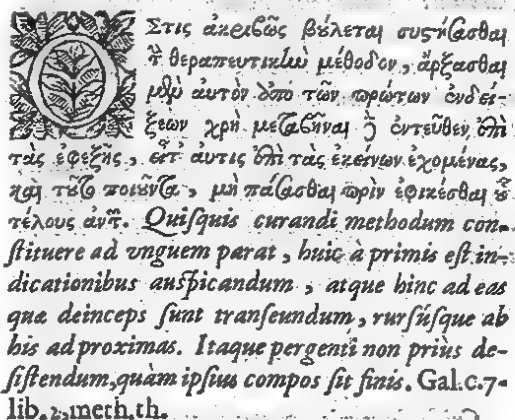 Ὅστις ἀκριβῶς βούλεται συστήσασθαι
τὴν θεραπευτικὴν μέθοδον, ἄρξασθαι
μὲν αὐτὸν ἀπὸ τῶν πρώτων ἐνδεί-
ξεων χρὴ μεταβῆναι δὲ ἐντεῦθεν ἐπὶ
τὰς ἐφεξῆς, εἶτ' αὖτις ἐπὶ τὰς ἐκείνων ἐχομένας,
καὶ τοῦτο ποιοῦντα, μὴ παύσασθαι πρὶν ἐφικέσθαι τοῦ
τέλους αὐτῆς. Quisquis curandi methodum con-
stituere ad vnguem parat, huic à primis est in-
dicationibus auspicandum, atque hinc ad eas
quæ deinceps sunt transeundum, rursúsque ab
his ad proximas. Itaque pergenti non priùs de-
sistendum, quàm ipsius compos sit finis. Gal.c.7.
lib.2.meth.th.